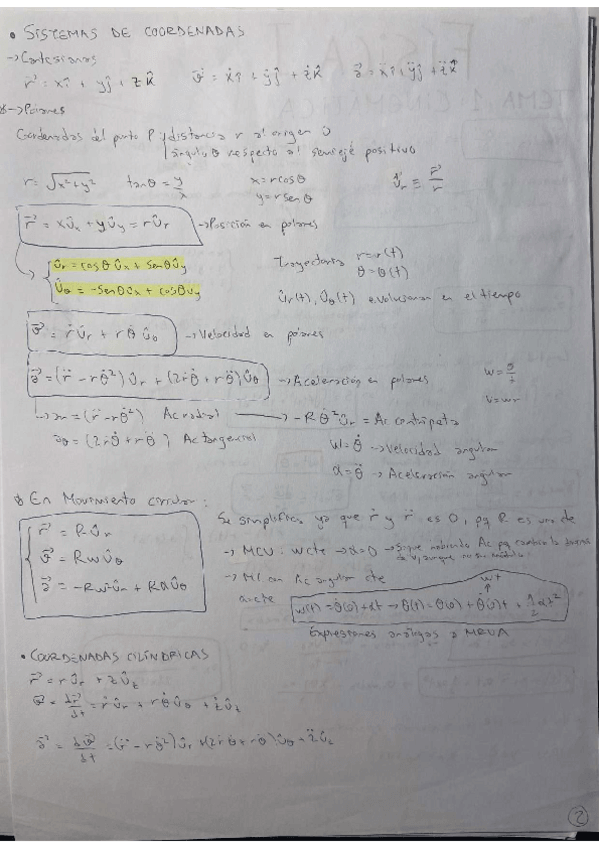 • SISTEMAS DE COORDENADAS
→ Cartesianas
r⃗ = xî + yĵ + zk̂   v⃗ = ẋî + ẏĵ + żk̂   a⃗ = ẍî + ÿĵ + z̈k̂
→ Polares
Coordenadas del punto P y distancia r al origen O
ángulo θ respecto al semieje positivo
r = √x²+y²   tanθ = y/x   x = rcosθ   ûr ≡ r⃗/r
y = r senθ
r⃗ = xûx + yûy = rûr → Posición en polares
ûr = cosθ ûx + senθ ûy   Trayectoria r = r(t)
ûθ = -senθ ûx + cosθ uy   θ = θ(t)
ûr(t), ûθ(t) evolucionan en el tiempo
v⃗ = ṙ ûr + r θ̇ ûθ → Velocidad en polares
a⃗ = (r̈ - rθ̇²) ûr + (2ṙθ̇ + rθ̈) ûθ → Aceleración en polares   w = θ/t
v = wr
→ ar = (r̈ - rθ̇²) Ac radial → -Rθ̇² ûr = Ac centrípeta
aθ = (2ṙθ̇ + rθ̈) Ac Tangencial   w = θ̇ → Velocidad angular
α = θ̈ → Aceleración angular
En Movimiento circular:
r⃗ = Rûr   Se simplifica ya que ṙ y r̈ es 0, pq R es
v⃗ = Rwûθ   → MCU: w cte → α = 0 → Sigue habiendo Ac pq cambia la
a⃗ = -Rw²ûr + Rαûθ   → MC con Ac angular cte
α cte   w(t) = θ̇(0) + αt → θ(t) = θ(0) + θ̇(0)t + 1/2 αt²
Expresiones análogas a MRUA
• COORDENADAS CILÍNDRICAS
r⃗ = rûr + zûz
v⃗ = dr⃗/dt = ṙûr + rθ̇ûθ + żûz
a⃗ = dv⃗/dt = (r̈ - rθ̇²)ûr + (2ṙθ̇ + rθ̈)ûθ + z̈ûz
2